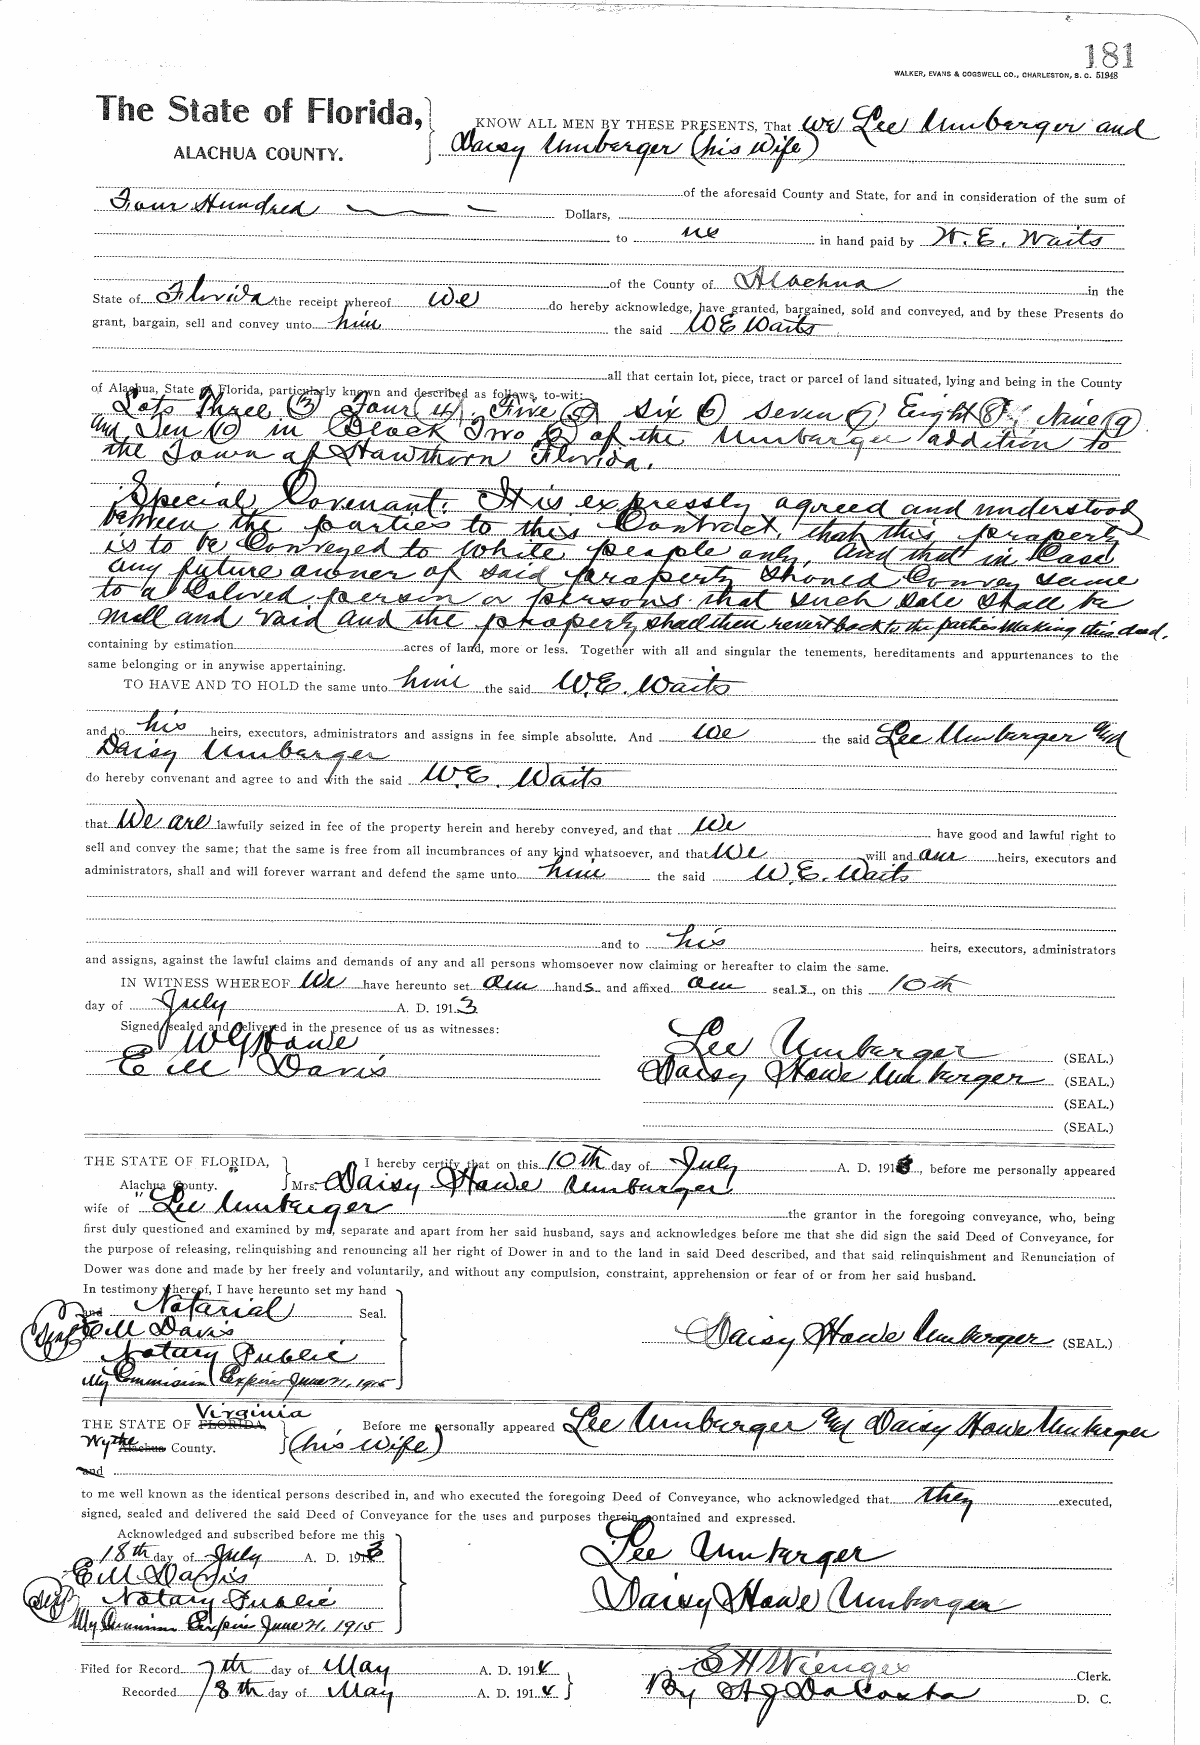 181
WALKER, EVANS & COGSWELL CO., CHARLESTON, S. C. 51948
The State of Florida,
ALACHUA COUNTY.
KNOW ALL MEN BY THESE PRESENTS, That we Lee Umbarger and
Daisy Umbarger (his wife)
of the aforesaid County and State, for and in consideration of the sum of
Four Hundred Dollars,
to us in hand paid by W. E. Waits
of the County of Alachua in the
State of Florida the receipt whereof we do hereby acknowledge, have granted, bargained, sold and conveyed, and by these Presents do
grant, bargain, sell and convey unto him the said W E Waits
all that certain lot, piece, tract or parcel of land situated, lying and being in the County
of Alachua, State of Florida, particularly known and described as follows, to-wit:
Lots Three (3) Four (4) Five (5) Six (6) Seven (7) Eight (8) Nine (9)
and Ten (10) in Block Two (2) of the Umbarger addition to
the Town of Hawthorn Florida.
Special Covenant. It is expressly agreed and understood
between the parties to this Contract, that this property
is to be Conveyed to White people only, and that in Case
any future owner of said property should Convey same
to a Colored person or persons that such sale shall be
null and void and the property shall then revert back to the parties making this deed.
containing by estimation acres of land, more or less. Together with all and singular the tenements, hereditaments and appurtenances to the
same belonging or in anywise appertaining.
TO HAVE AND TO HOLD the same unto him the said W. E. Waits
and to his heirs, executors, administrators and assigns in fee simple absolute. And we the said Lee Umbarger and
Daisy Umbarger
do hereby convenant and agree to and with the said W. E. Waits
that We are lawfully seized in fee of the property herein and hereby conveyed, and that we have good and lawful right to
sell and convey the same; that the same is free from all incumbrances of any kind whatsoever, and that We will and our heirs, executors and
administrators, shall and will forever warrant and defend the same unto him the said W. E. Waits
and to his heirs, executors, administrators
and assigns, against the lawful claims and demands of any and all persons whomsoever now claiming or hereafter to claim the same.
IN WITNESS WHEREOF We have hereunto set our hands and affixed our seal s, on this 10th
day of July A. D. 1913
Signed sealed and delivered in the presence of us as witnesses:
W G Howe
E M Davis
Lee Umbarger (SEAL.)
Daisy Howe Umbarger (SEAL.)
(SEAL.)
(SEAL.)
THE STATE OF FLORIDA,
Alachua County.
I hereby certify that on this 10th day of July A. D. 1913, before me personally appeared
Mrs. Daisy Howe Umbarger
wife of Lee Umbarger the grantor in the foregoing conveyance, who, being
first duly questioned and examined by me, separate and apart from her said husband, says and acknowledges before me that she did sign the said Deed of Conveyance, for
the purpose of releasing, relinquishing and renouncing all her right of Dower in and to the land in said Deed described, and that said relinquishment and Renunciation of
Dower was done and made by her freely and voluntarily, and without any compulsion, constraint, apprehension or fear of or from her said husband.
In testimony whereof, I have hereunto set my hand
and Notarial Seal.
Seal E M Davis
Notary Public
My Commission Expires June 21, 1915
Daisy Howe Umbarger (SEAL.)
THE STATE OF FLORIDA, Virginia
Wythe Alachua County.
Before me personally appeared Lee Umbarger and Daisy Howe Umbarger
(his wife)
and
to me well known as the identical persons described in, and who executed the foregoing Deed of Conveyance, who acknowledged that they executed,
signed, sealed and delivered the said Deed of Conveyance for the uses and purposes therein contained and expressed.
Acknowledged and subscribed before me this
18th day of July A. D. 1913
E M Davis
Seal Notary Public
My Commission Expires June 21, 1915
Lee Umbarger
Daisy Howe Umbarger
Filed for Record 7th day of May A. D. 1914
Recorded 8th day of May A. D. 1914
S H Wienges Clerk.
By DaCosta D. C.